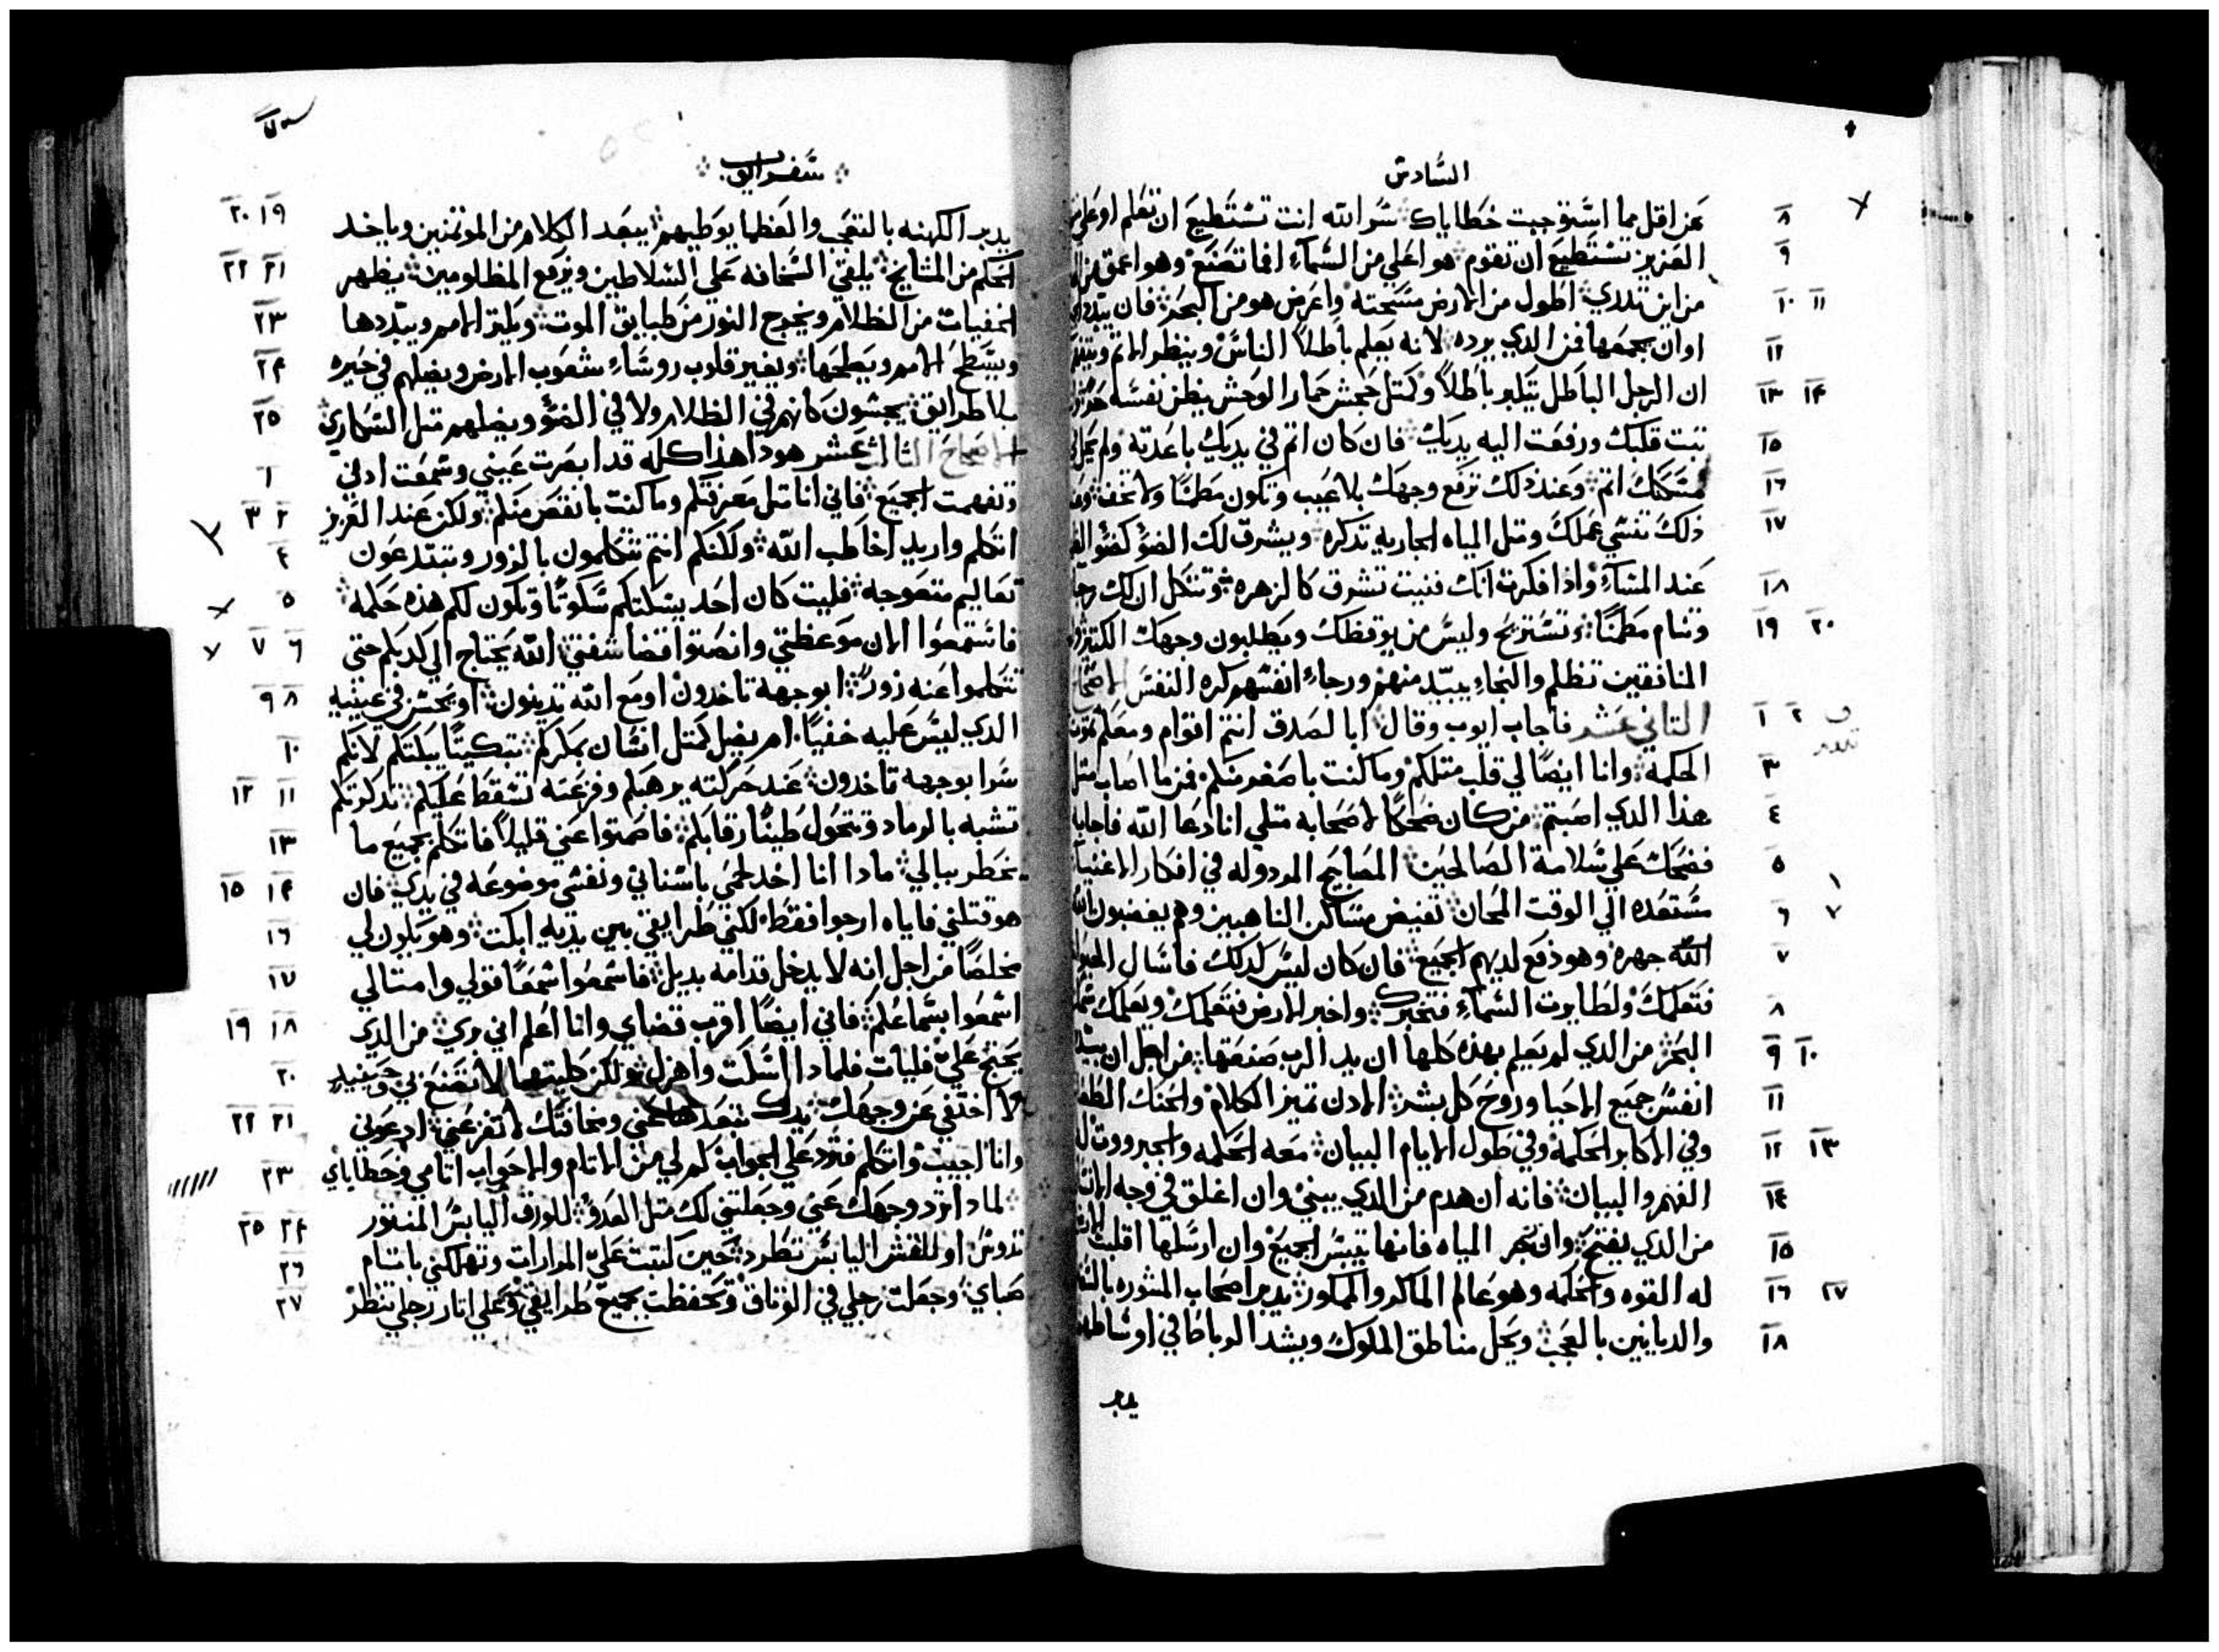 السادس
عن اقل مما استوجبت خطاياك سر الله انت تستطيع ان تعلم او على
العزيز تستطيع ان تقوم هو اعلي من السماء افما تصنع وهو اعمق من
من اين تدري اطول من الارض مسحته واعرض هو من البحر فان يبدد
او ان يجمعها فمن الدي يرده لانه يعلم باطلا الناس وينظر الاتم
ان الرجل الباطل يتكبر باطلا وكمتل جحش حمار الوحش يظن نفسه
تبت قلبك ورفعت اليه يديك فان كان اتم في يديك باعدته ولم
مسكنك اتم وعند ذلك ترفع وجهك بلا عيب وتكون مطمنا ولا تخف
ذلك تنسي عملك ومتل المياه الجاريه تدكره ويشرق لك الضؤ كضؤ
عند المساء واذا فكرت انك فنيت تشرق كالزهره وتتكل ان لك رجا
وتنام مطمنا وتستريح وليس من يوقظك ويطلبون وجهك
المنافقين تظلم والنجاء يبيد منهم ورجاء انفسهم كره النفس
التاني عشر فاجاب ايوب وقال ابا لصدق انتم اقوام ومعكم
الحكمه وانا ايضا لي قلب متلكم وما كنت باصغر منكم فمن ما اصاب متل
هذا الدي اصبتم من كان ضحكا لاصحابه متلي انا دعا الله فاجابه
فضحك علي سلامة الصالحين المصابيح المردوله في افكار الاغنيا
مستعده الي الوقت المحان تفيض مساكن الناهبين وهم يغضبون
الله جهره وهو دفع لديهم الجميع فان كان ليس كدلك فاسال
فتعلمك ولطايرت السماء فتخبرك واخبر الارض فتعلمك ويعلمك
البحر من الدي لم يعلم بهذه كلها ان يد الرب صنعتها من اجل ان
انفس جميع الاحيا وروح كل بشر الادن تميز الكلام والحنك
وفي الاكابر الحكمه وفي طول الايام البيان معه الحكمه والجبروت
الفهم والبيان فانه ان هدم من الدي يبني وان اغلق في وجه
من الدي يفتح وان حجر المياه فانها تيبس الجميع وان ارسلها اقلبت
له القوه والحكمه وهو عالم الماكر والممكور يدبر اصحاب المشوره
والديانين بالعجب ويحل مناطق الملوك ويشد الرباطا في اوساطهم
سفر ايوب
يدبر الكهنه بالتعجب والعظما يوطيهم يبعد الكلام من الموتمنين وياخد
الحكم من المشايخ يلقي السخانه علي السلاطين ويرفع المظلومين يظهر
الخفيات من الظلام ويخرج النور من طبايق الموت ويكتر الامم ويبددها
ويسطح الامم ويطحها ويغير قلوب روساء شعوب الارض ويضلهم في حيره
بلا طرايق يجسون كانهم في الظلام ولا في الضؤ ويضلهم متل السكاري
الاصحاح التالت عشر هودا هذا كله قد ابصرت عيني وسمعت ادني
وتفهمت الجميع فاني انا متل معرفتكم وما كنت بانقص منكم ولكن عند العزيز
اتكلم واريد اخاطب الله ولكنكم انتم تتكلمون بالزور وتبتدعون
تعاليم متعوجه فليت كان احد يسكتكم سكوتا وتكون لكم هذه حكمه
فاستمعوا الان موعظتي وانصتوا قضا شفتي الله يحتاج الي كدبكم حتي
تتكلموا عنه زورا ابوجهه تاخدون او مع الله تدينون او يحسن في عينيه
الدي ليس عليه خفيا ام يضل كمتل انسان بمكركم تبكيتا يبكتكم لانكم
سرا بوجهه تاخدون عند حركته يرهبكم وفزعته تسقط عليكم تدكرتكم
تشبه بالرماد وتتحول طينا رقابكم فاصمتوا عني قليلا فاتكلم بجميع ما
يخطر ببالي مادا انا اخد لحمي باسناني ونفسي موضوعه في يدي فان
هو قتلني فاياه ارجوا فقط لكني طرايقي بين يديه ابكت وهو يكون لي
مخلصا من اجل انه لا يدخل قدامه بديل فاسمعوا سمعا قولي وامتالي
اسمعوا بسماعكم فاني ايضا اقرب قضاي وانا اعلم اني بري من الدي
يحتج علي فليات فلمادا اسكت واهزل ولكن كليتهما لا تصنع بي وحينيد
لا اختفي عن وجهك يدك تبعدها عني ومخافتك لا تفزعني ادعوني
وانا اجيبك واتكلم فترد علي الجواب كم لي من الاتام والاحواب اتامي وخطاياي
لمادا ترد وجهك عني وجعلتني لك متل العدو للورق اليابس المنتور
تدوس او للقش اليابس تطرد حين كتبت علي المرارات وتهلكني باتام
صباي وجعلت رجلي في الوتاق وتحفظت بجميع طرايقي وعلي اتار رجلي تنظر